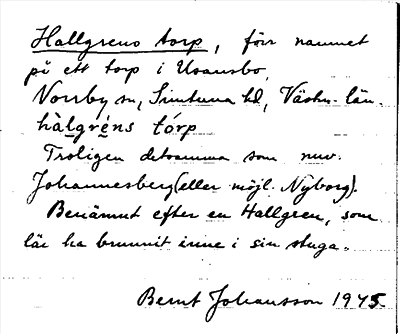 Hallgrens torp, förr namnet
på ett torp i Usansbo,
Norrby sn, Simtuna hd, Västm. län.
hàlgréns tórp
Troligen detsamma som nuv.
Johannesberg (eller möjl. Nyborg).
Benämnt efter en Hallgren, som
lär ha brunnit inne i sin stuga.
Bernt Johansson 1945.